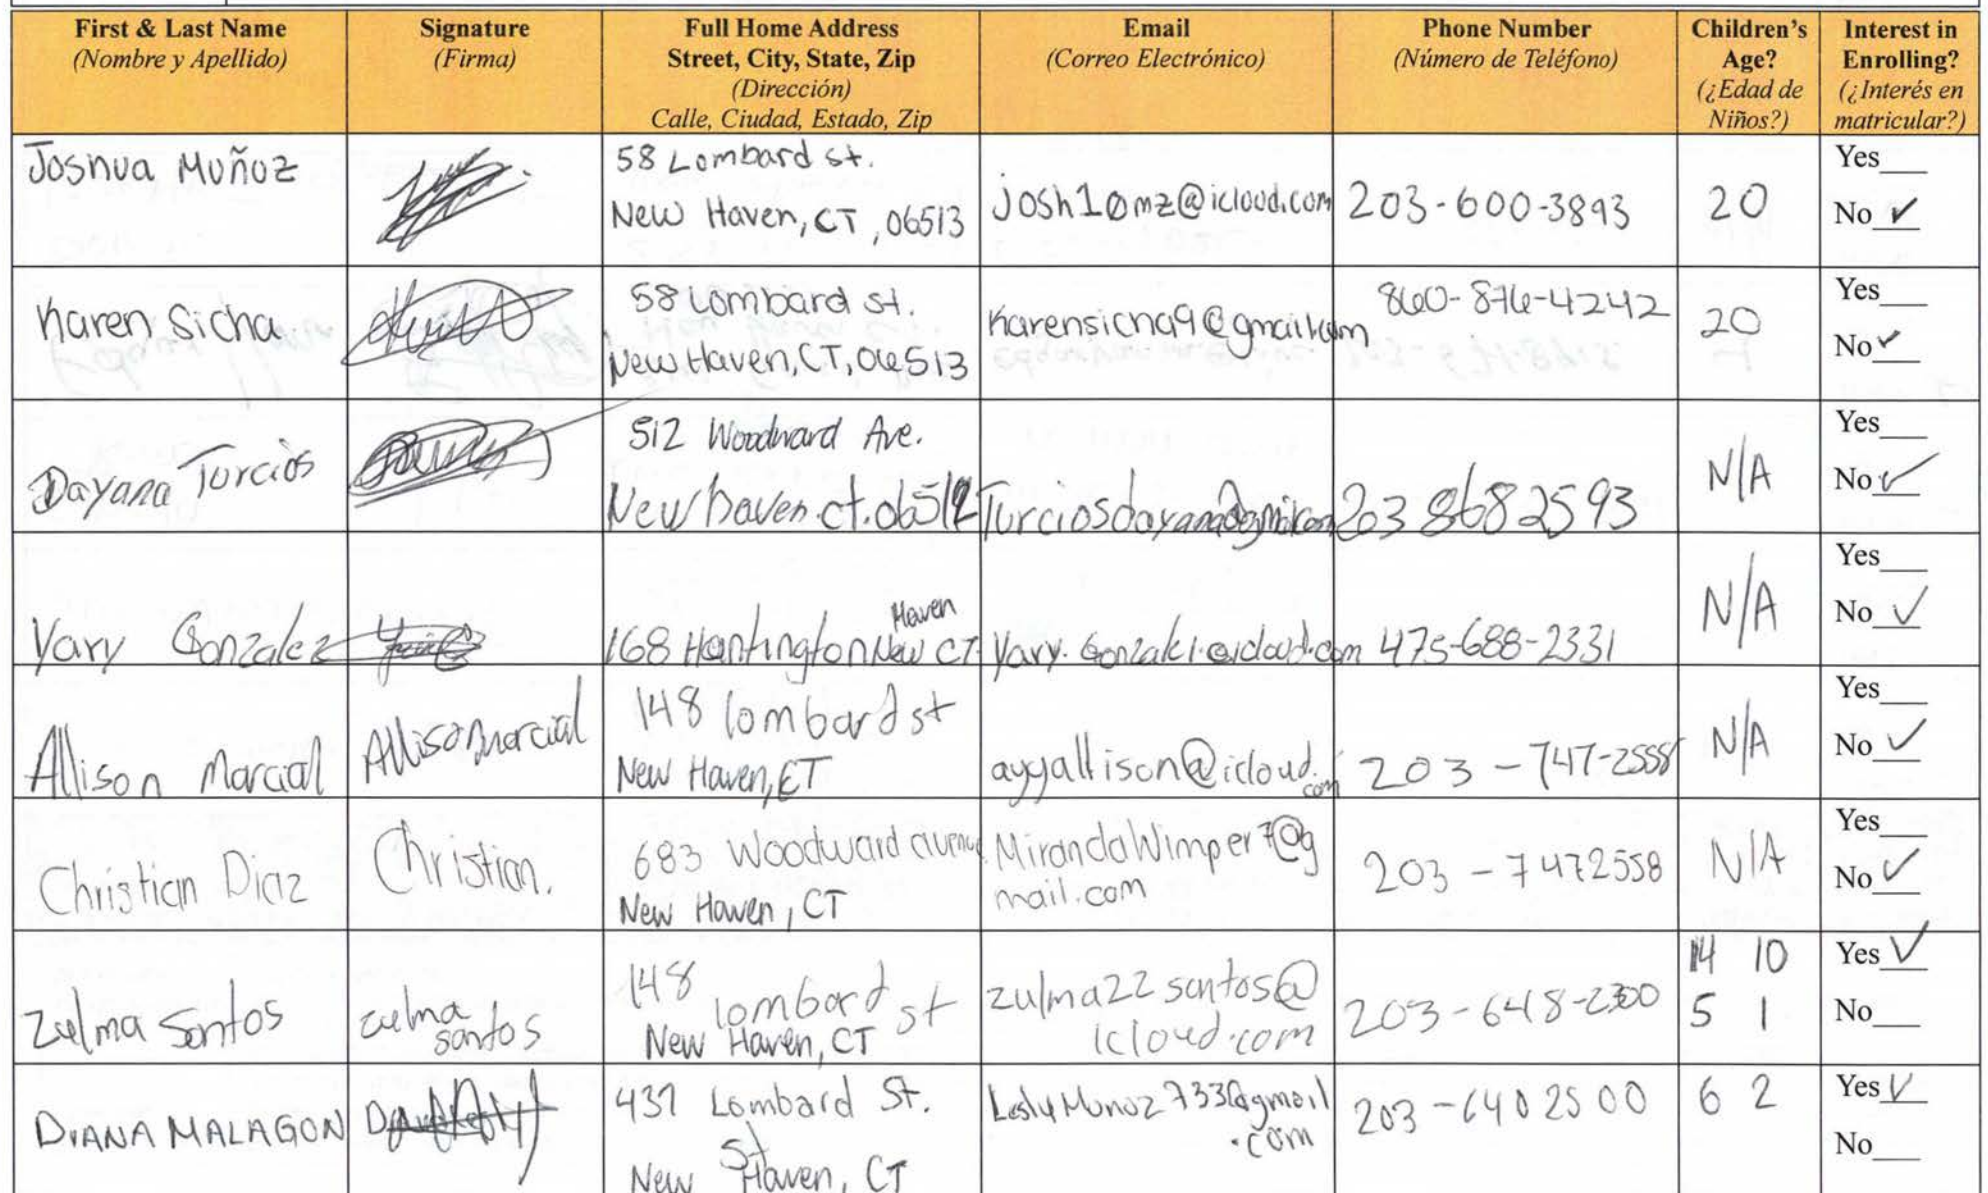 First & Last Name
(Nombre y Apellido)
Signature
(Firma)
Full Home Address
Street, City, State, Zip
(Dirección)
Calle, Ciudad, Estado, Zip
Email
(Correo Electrónico)
Phone Number
(Número de Teléfono)
Children's
Age?
(¿Edad de
Niños?)
Interest in
Enrolling?
(¿Interés en
matricular?)
Joshua Muñoz
58 Lombard st.
New Haven, CT, 06513
josh10mz@icloud.com
203-600-3893
20
Yes
No ✓
Karen Sicha
58 Lombard st.
New Haven, CT, 06513
Karensicha9@gmail.com
860-876-4242
20
Yes
No ✓
Dayana Turcios
512 Woodward Ave.
New haven. ct. 06512
Turciosdayana@gmail.com
203 8682593
N/A
Yes
No ✓
Yary Gonzalez
Haven
168 Huntington New CT.
475-688-2331
N/A
Yes
No ✓
Allison Marcial
Allison Marcial
148 lombard st
New Haven, CT
ayyallison@icloud.
com
203-747-2558
N/A
Yes
No ✓
Christian Diaz
Christian.
683 Woodward avenue
New Haven, CT
MirandaWimper7@g
mail.com
203-7472558
N/A
Yes
No ✓
Zulma Santos
zulma
santos
148
lombard st
New Haven, CT
zulma22santos@
icloud.com
203-648-2300
14 10
5 1
Yes ✓
No
DIANA MALAGON
437 Lombard St.
St
New Haven, CT
LeslyMunoz733@gmail
.com
203-640 2500
6 2
Yes ✓
No